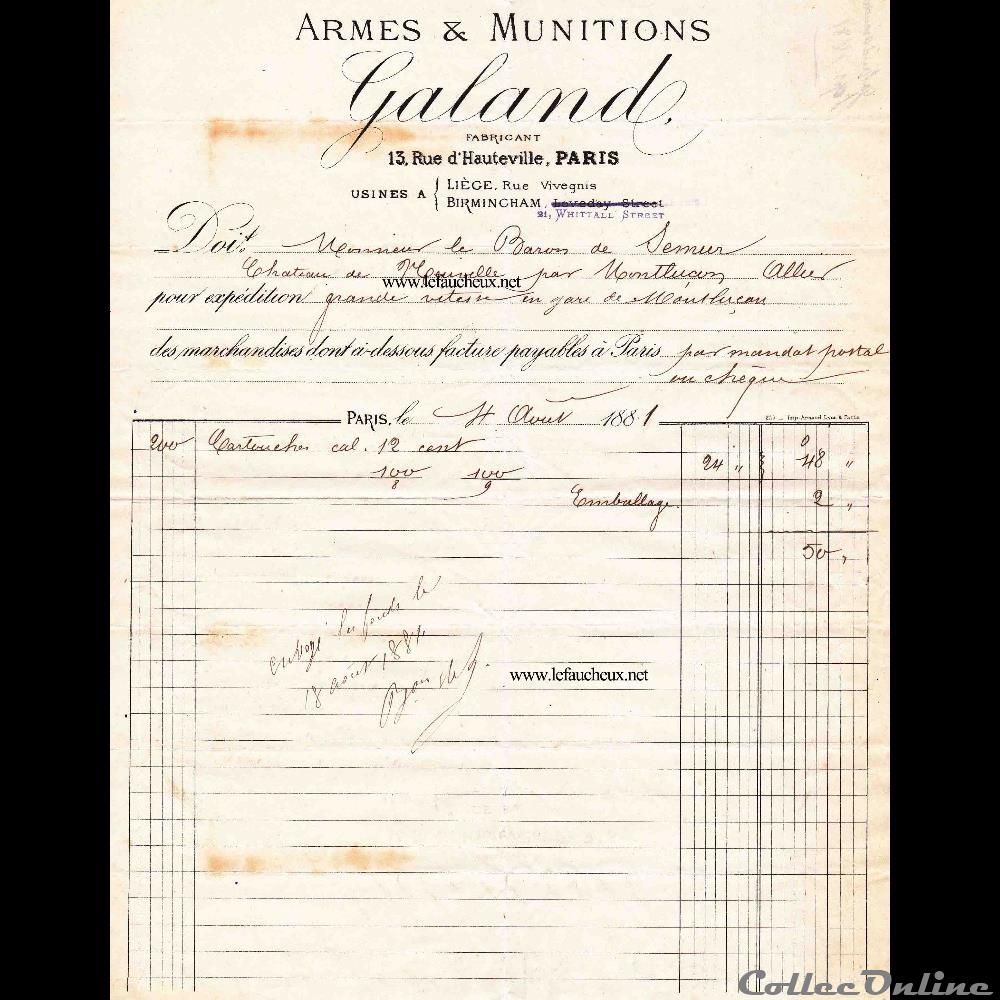 ARMES & MUNITIONS
Galand,
FABRICANT
13, Rue d'Hauteville, PARIS
USINES A { LIÈGE, Rue Vivegnis
BIRMINGHAM, Loveday Street
21, WHITTALL STREET
Doit Monsieur le Baron de Semur
Chateau de par Montluçon Allier
www.lefaucheux.net
pour expédition grande vitesse en gare de Montluçon
des marchandises dont ci-dessous facture payables à Paris par mandat postal
ou chèque
PARIS, le 4 Août 1881
200 Cartouches cal. 12 cent 24 " } 48 "
100 100
8 9
Emballage 2 "
50 "
envoyé les fonds le
18 août 1881
www.lefaucheux.net
CollecOnline